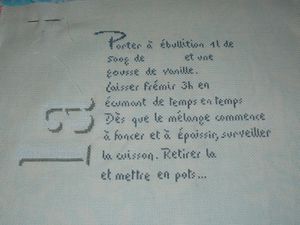 Porter à ébullition 1l de
500g de et une
gousse de vanille.
Laisser frémir 3h en
écumant de temps en temps
Dès que le mélange commence
à foncer et à épaissir, surveiller
la cuisson. Retirer la
et mettre en pots...
la